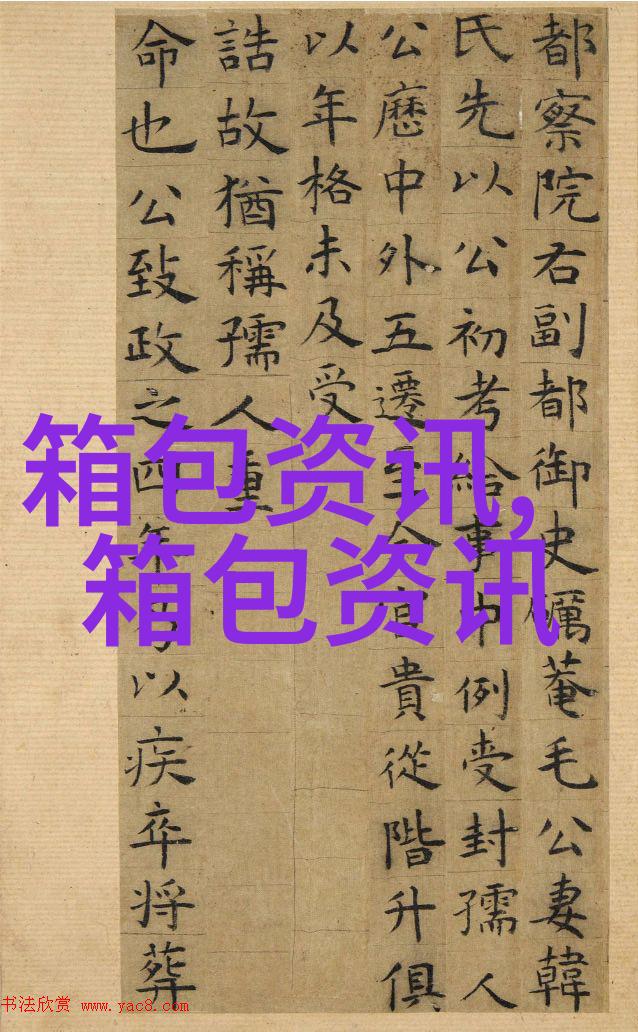 都察院右副都御史礪菴毛公妻韓
氏先以公初考給事中例受封孺人
公歷中外五遷至今官貴從階升俱
以年格未及受
誥故猶稱孺人重
命也公致政之四年以疾卒将葬
箱包资讯,
箱包资讯
书法欣赏 www.yac8.com